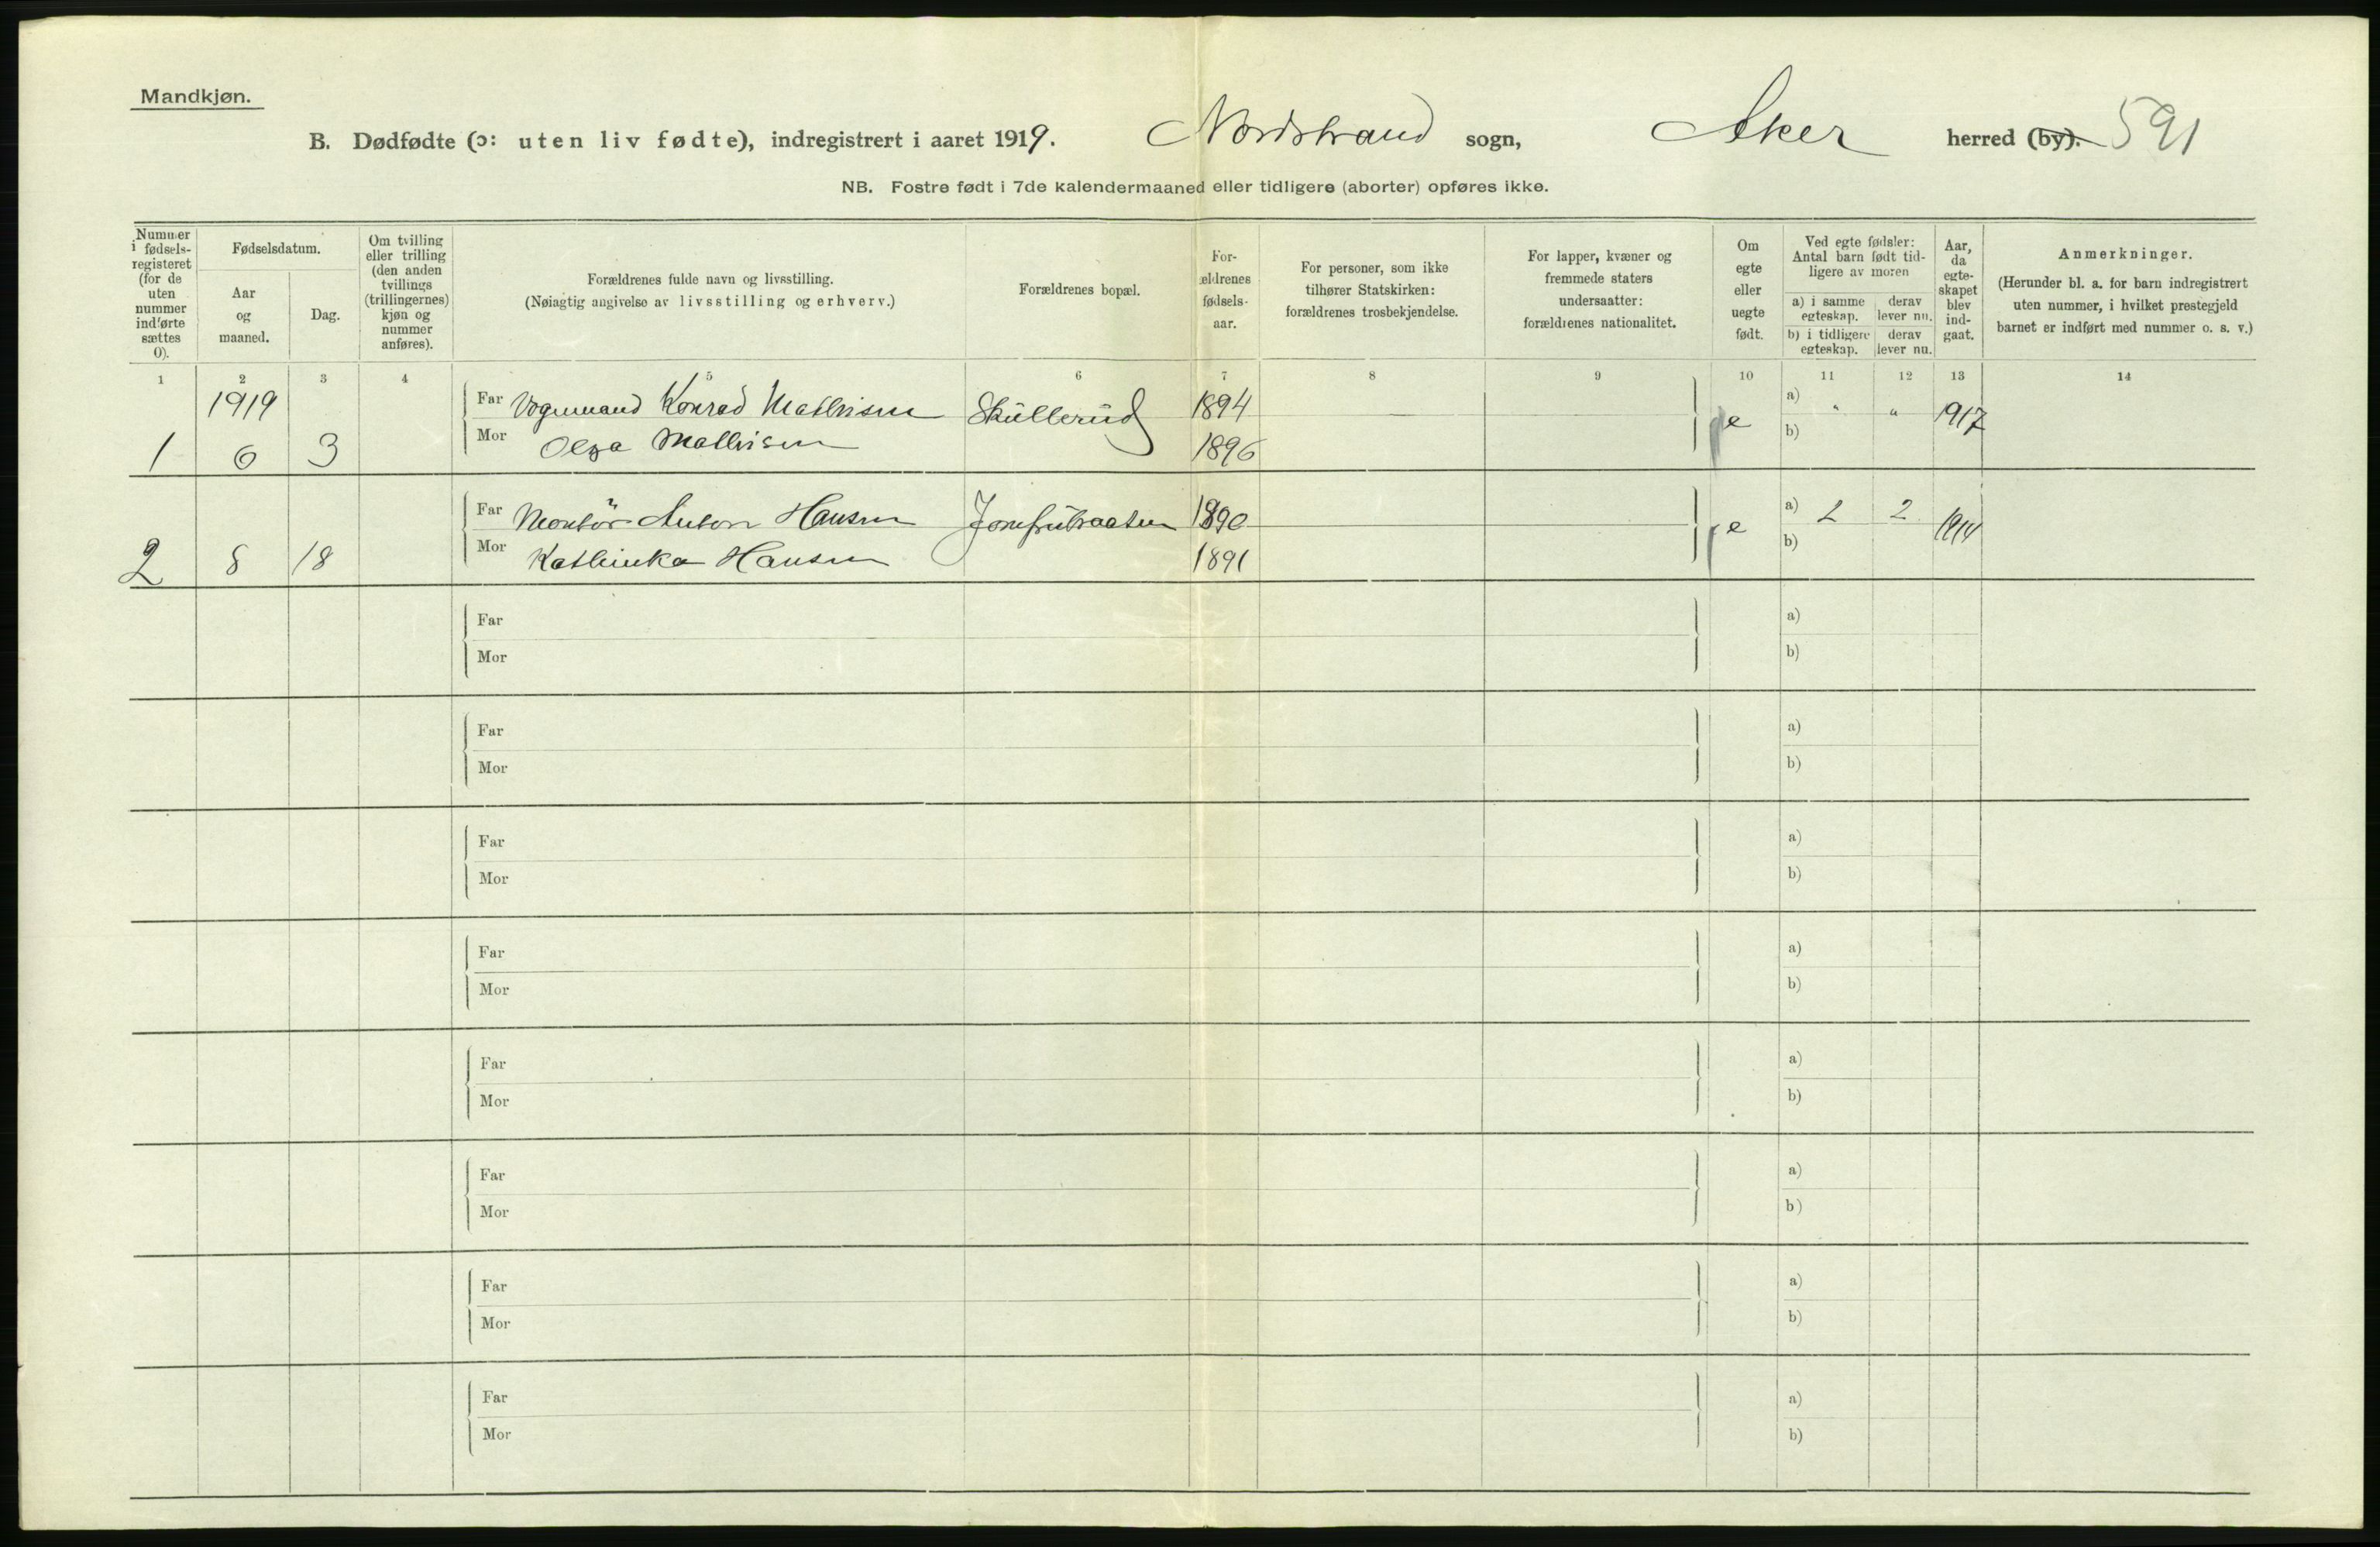 Mandkjøn.
B. Dødfødte (ɔ: uten liv fødte), indregistrert i aaret 1919. Nordstrand sogn, Aker herred (by). 591
NB. Fostre født i 7de kalendermaaned eller tidligere (aborter) opføres ikke.
Nummer
i fødsels-
registeret
(for de
uten
nummer
indførte
sættes
0).
Fødselsdatum.
Aar
og
maaned.
Dag.
Om tvilling
eller trilling
(den anden
tvillings
(trillingernes)
kjøn og
nummer
anføres).
Forældrenes fulde navn og livsstilling.
(Nøiagtig angivelse av livsstilling og erhverv.)
Forældrenes bopæl.
For-
ældrenes
fødsels-
aar.
For personer, som ikke
tilhører Statskirken:
forældrenes trosbekjendelse.
For lapper, kvæner og
fremmede staters
undersaatter:
forældrenes nationalitet.
Om
egte
eller
uegte
født.
Ved egte fødsler:
Antal barn født tid-
ligere av moren
a) i samme
egteskap.
derav
lever nu.
b) i tidligere
egteskap.
derav
lever nu.
Aar,
da
egte-
skapet
blev
ind-
gaat.
Anmerkninger.
(Herunder bl. a. for barn indregistrert
uten nummer, i hvilket prestegjeld
barnet er indført med nummer o. s. v.)
1 2 3 4 5 6 7 8 9 10 11 12 13 14
1919 Far Vognmand Konrad Mathisen Sküllerüd 1894 — e a) " " 1917
1 6 3 Mor Olga Mathisen 1896 b)
Far Montör Anton Hansen Jomfrübraaten 1890 e a) 2 2 1914
2 8 18 Mor Kathinka Hansen 1891 b)
Far a)
Mor b)
Far a)
Mor b)
Far a)
Mor b)
Far a)
Mor b)
Far a)
Mor b)
Far a)
Mor b)
Far a)
Mor b)
Far a)
Mor b)